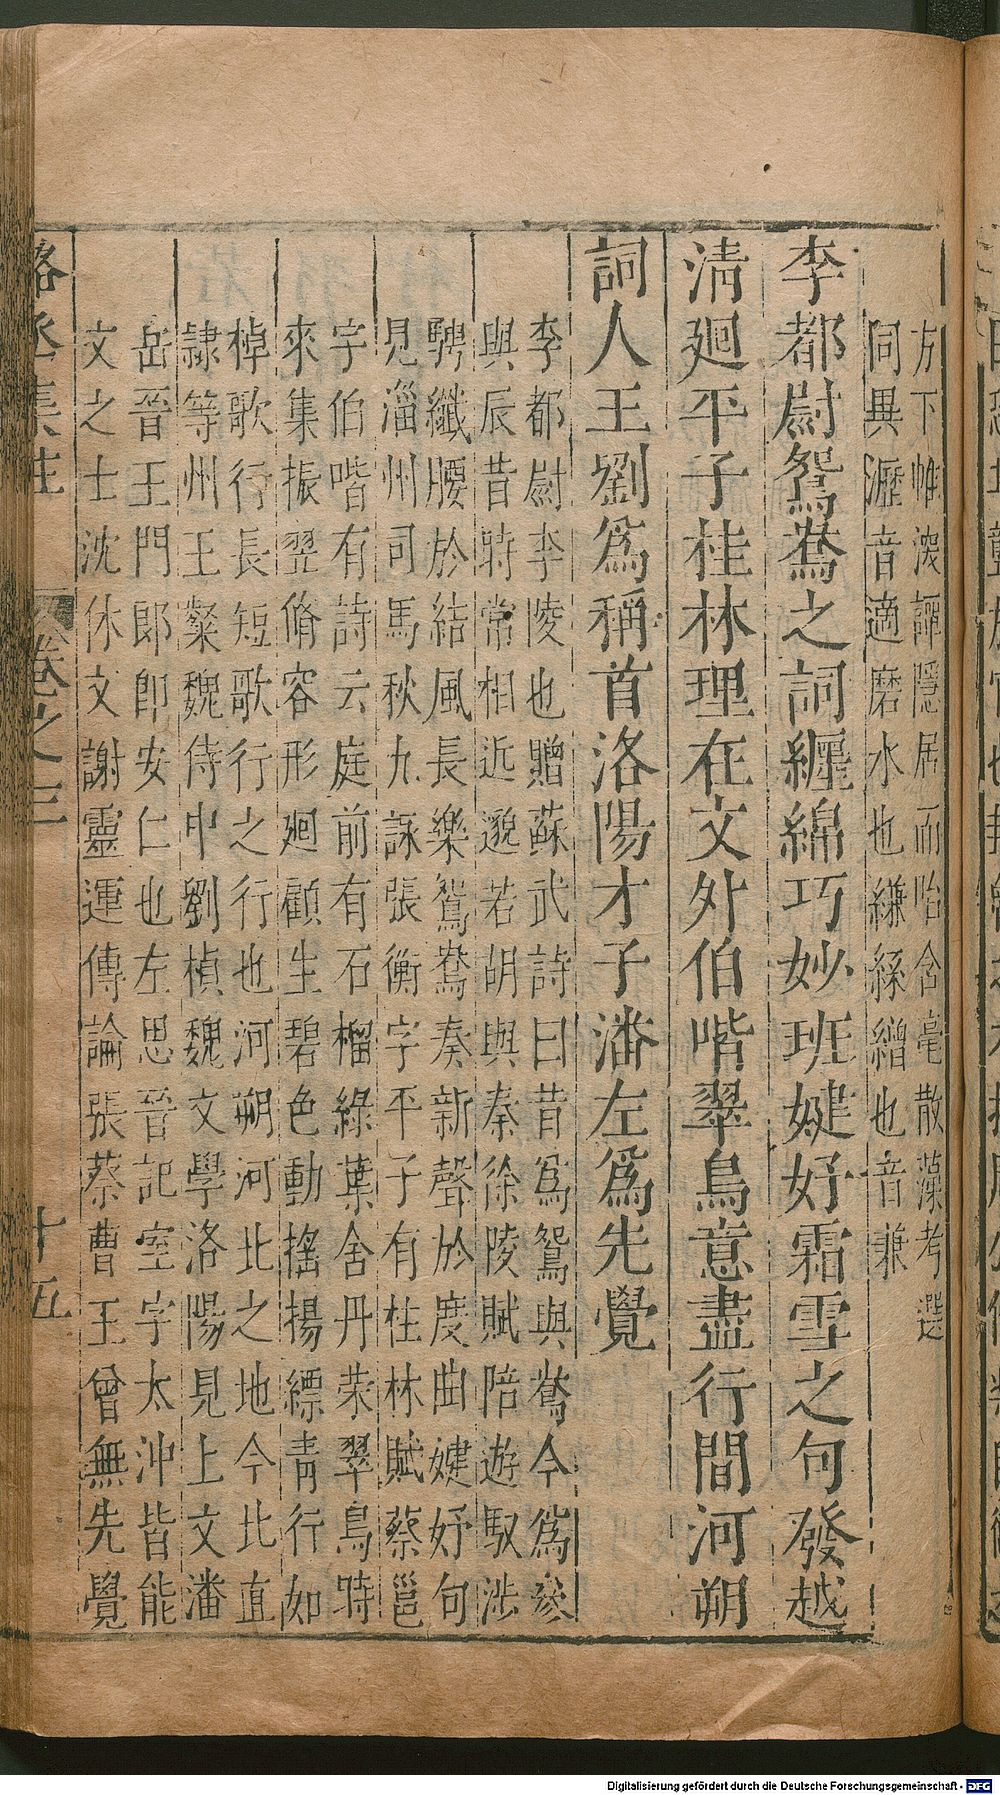 方下帷[…]諢隱居而[…]含毫散藻考選
同異瀝音適磨水也縑絲繒也音兼
李都尉鴛鴦之詞纏綿巧妙班婕妤霜雪之句發越
清廻平子桂林理在文外伯喈翠鳥意盡行間河朔
詞人王劉爲稱首洛陽才子潘左爲先覺
李都尉李陵也贈蘇武詩曰昔爲鴛與鴦今爲參
與辰昔時常相近邈若胡與秦徐陵賦陪遊馭涉
騁纖腰於結風長樂鴛鴦奏新聲於度曲婕妤句
見淄州司馬秋九詠張衡字平子有桂林賦蔡邕
字伯喈有詩云庭前有石榴綠葉含丹荣翠鳥時
來集振翌脩容形廻顧生碧色動搖揚縹青行如
棹歌行長短歌行之行也河朔河北之地今北直
隷等州王粲魏侍中劉楨魏文學洛陽見上文潘
岳晉王門郎卽安仁也左思晉記室字太沖皆能
文之士沈休文謝靈運傳論張蔡曹王曾無先覺
卷之三
十五
Digitalisierung gefördert durch die Deutsche Forschungsgemeinschaft - DFG